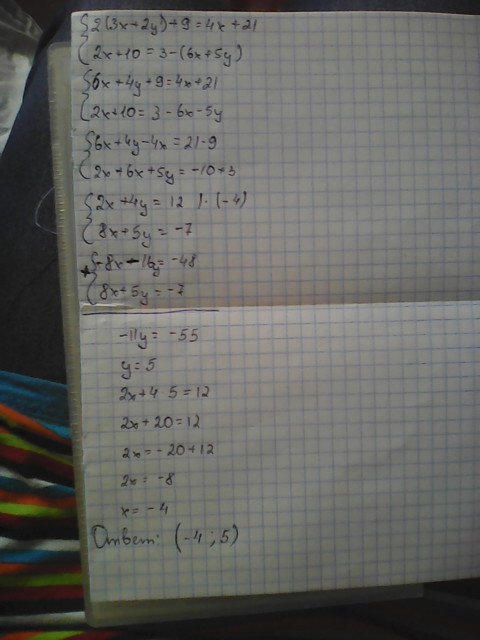 {2(3x+2y)+9=4x+21
{2x+10=3-(6x+5y)
{6x+4y+9=4x+21
{2x+10=3-6x-5y
{6x+4y-4x=21-9
{2x+6x+5y=-10+3
{2x+4y=12 |·(-4)
{8x+5y=-7
+{-8x-16y=-48
{8x+5y=-7
-11y=-55
y=5
2x+4 5=12
2x+20=12
2x=-20+12
2x=-8
x=-4
Ответ: (-4;5)